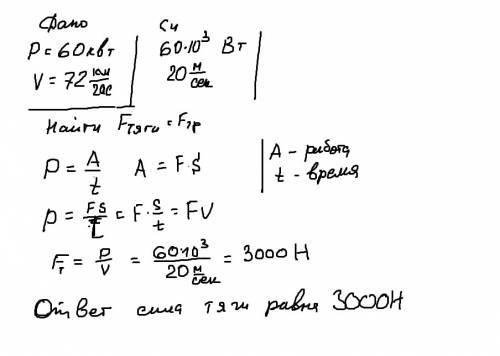 Дано Си
P = 60 квт 60·10³ Вт
V = 72 км/час 20 м/сек
Найти Fтяги = Fтр
P = A/t A = F·S A - работа
t - время
P = FS/t = F·S/t = FV
Fт = P/V = 60·10³/20 м/сек = 3000 Н
Ответ сила тяги равна 3000Н